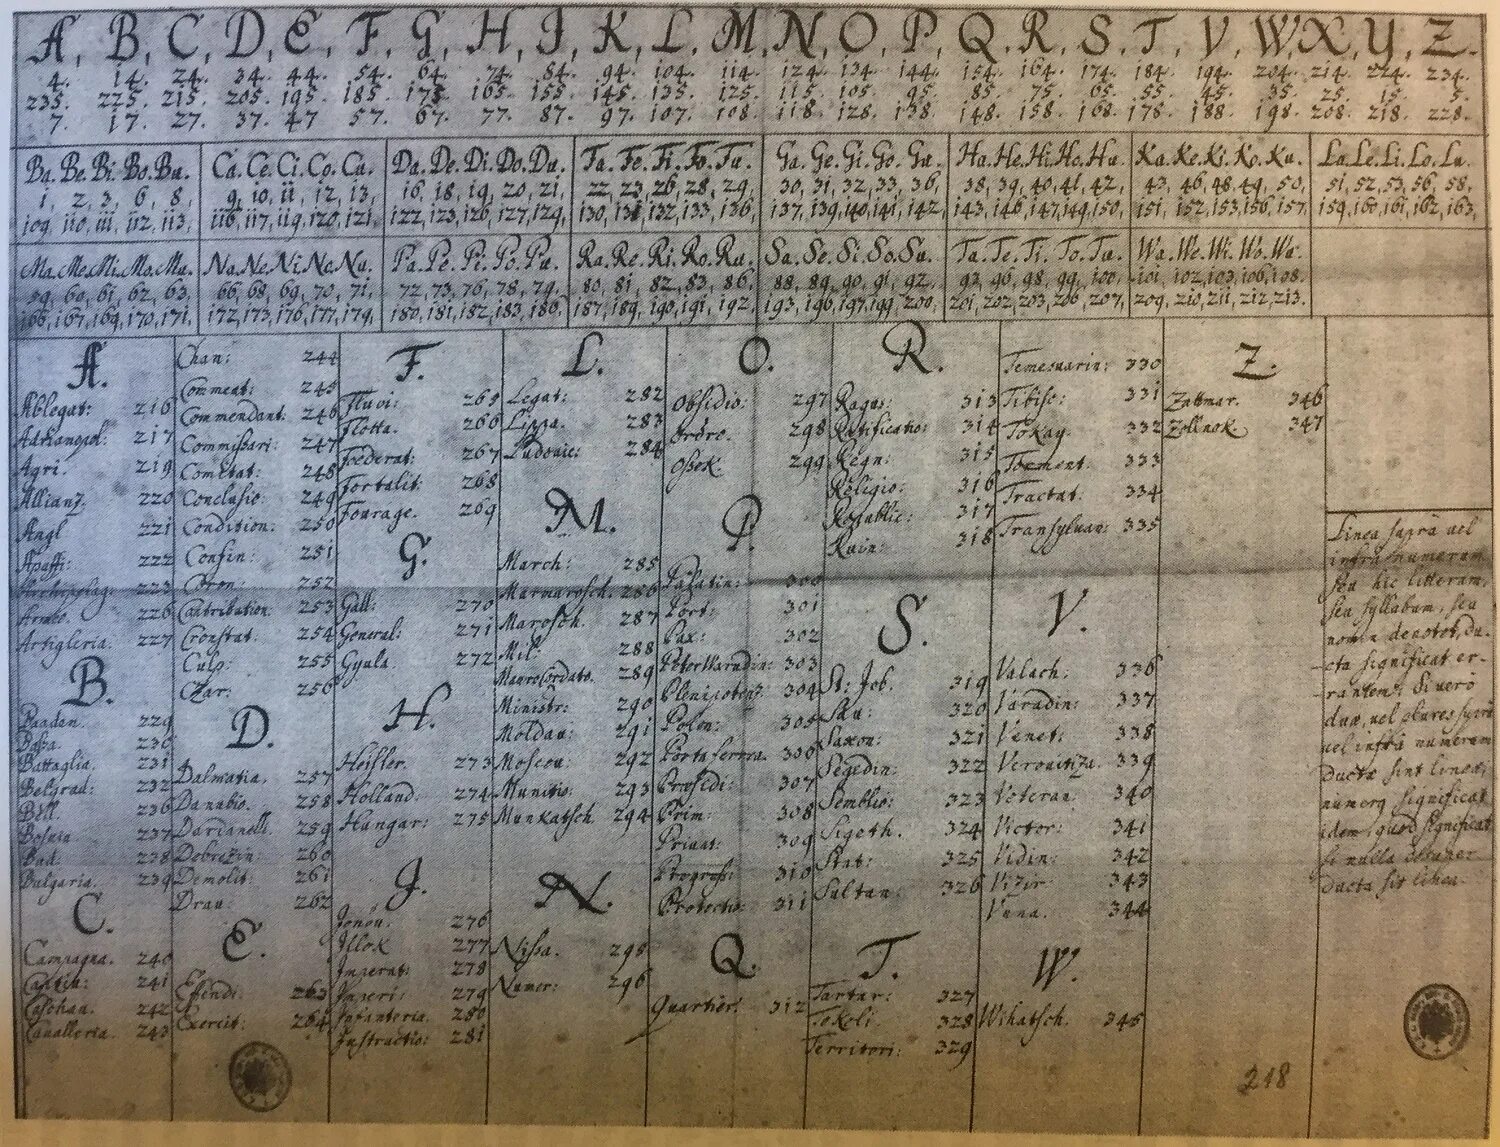 A, B, C, D, E, F, G, H, I, K, L, M, N, O, P, Q, R, S, T, V, W, X, Y, Z.
4. 14. 24. 34. 44. 54. 64. 74. 84. 94. 104. 114. 124. 134. 144. 154. 164. 174. 184. 194. 204. 214. 224. 234.
235. 225. 215. 205. 195. 185. 175. 165. 155. 145. 135. 125. 115. 105. 95. 85. 75. 65. 55. 45. 35. 25. 15. 5.
7. 17. 27. 37. 47 57. 67. 77. 87. 97. 107. 108. 118. 128. 138. 148. 158. 168. 178. 188. 198. 208. 218. 228.
Ba. Be. Bi. Bo. Bu.
1, 2, 3, 6, 8,
109, 110, 111, 112, 113,
Ca. Ce. Ci. Co. Cu.
9, 10, 11, 12, 13,
116, 117, 119, 120, 121,
Da. De. Di. Do. Du.
16, 18, 19, 20, 21,
122, 123, 126, 127, 129,
Fa. Fe. Fi. Fo. Fu.
22, 23, 26, 28, 29,
130, 131, 132, 133, 136,
Ga. Ge. Gi. Go. Gu.
30, 31, 32, 33, 36,
137, 139, 140, 141, 142,
Ha. He. Hi. Ho. Hu.
38, 39, 40, 41, 42,
143, 146, 147, 149, 150,
Ka. Ke. Ki. Ko. Ku.
43, 46, 48, 49, 50,
151, 152, 153, 156, 157,
La. Le. Li. Lo. Lu.
51, 52, 53, 56, 58,
159, 160, 161, 162, 163,
Ma. Me. Mi. Mo. Mu.
59, 60, 61, 62, 63,
166, 167, 169, 170, 171,
Na. Ne. Ni. No. Nu.
66, 68, 69, 70, 71,
172, 173, 176, 177, 179,
Pa. Pe. Pi. Po. Pu.
72, 73, 76, 78, 79,
180, 181, 182, 183, 186,
Ra. Re. Ri. Ro. Ru.
80, 81, 82, 83, 86,
187, 189, 190, 191, 192,
Sa. Se. Si. So. Su.
88, 89, 90, 91, 92,
193, 196, 197, 199, 200,
Ta. Te. Ti. To. Tu.
93, 96, 98, 99, 100,
201, 202, 203, 206, 207,
Wa. We. Wi. Wo. Wu.
101, 102, 103, 106, 108.
209, 210, 211, 212, 213.
A.
Ablegat: 216
Adrianopol: 217
Agri. 219
Allianz. 220
Angl 221
Apaffi: 222
Archipelag: 223
226
Artigleria. 227
B.
Baadan. 229
Bassa. 230
Battaglia. 231
Belgrad: 232
Bell. 236
Bosnia 237
Bud. 238
Bulgaria. 239
C.
Campagna. 240
241
Caschau. 242
Cavalleria. 243
Chan: 244
Commeat: 245
Commendant: 246
Commissari: 247
Comitat: 248
Conclusio: 249
Condition: 250
Confin: 251
252
Contribution: 253
Cronstat: 254
Culp: 255
Czar: 256
D.
Dalmatia. 257
Danubio. 258
Dardanell. 259
Debrezin: 260
Demolit: 261
Drau: 262
E.
Effendi: 263
Exercit: 264
F.
Fluvi: 265
Flotta. 266
Foederat: 267
Fortalit: 268
Fourage. 269
G.
Gall: 270
General: 271
Gyula. 272
H.
Heisler. 273
Holland: 274
Hungar: 275
J.
Jenöu. 276
Illok 277
Imperat: 278
Imperi: 279
Infanteria. 280
Instructio: 281
L.
Legat: 282
Lippa. 283
Ludovic: 284
M.
March: 285
Marmarosch. 286
Marosch. 287
Mil: 288
Maurocordato. 289
Ministr: 290
Moldau: 291
Moscou: 292
Munitio: 293
Munkatsch. 294
N.
Nissa. 295
Numer: 296
O.
Obsidio: 297
Ordre. 298
Ossek. 299
P.
Palatin: 300
Port: 301
Pax: 302
PeterWaradin: 303
Plenipotenz. 304
Polon: 305
Porta ferrea. 306
Praesidi: 307
Prim: 308
Privat: 309
Progress: 310
Protectio: 311
Q.
Quartier. 312
R.
Ragus: 313
Ratificatio: 314
Regn: 315
Religio: 316
Republic: 317
Ruin: 318
S.
St: Job. 319
Sau: 320
Saxon: 321
Segedin: 322
Semblio: 323
Sigeth. 324
Stat: 325
Sultan: 326
T.
Tartar: 327
Tököli 328
Territori: 329
Temesvarin: 330
Tibisc: 331
Tokay. 332
Torment: 333
Tractat: 334
Transylvan: 335
V.
Valach: 336
Varadin: 337
Venet: 338
Verovitiza. 339
Veteran: 340
Victor: 341
Vidin: 342
Vizir: 343
Vnna. 344
W.
Wihatsch. 345
Z.
Zatmar. 346
Zollnok. 347
Linea suprà vel
infrà numerum
seu hic litteram,
seu syllabam, seu
nomen denotet, du-
cta significat er-
rantem. Si verò
duae, vel plures suprà
vel infrà numerum
ductae sint lineae,
numerus significat
idem, quod significat
si nulla
ducta sit linea.
218